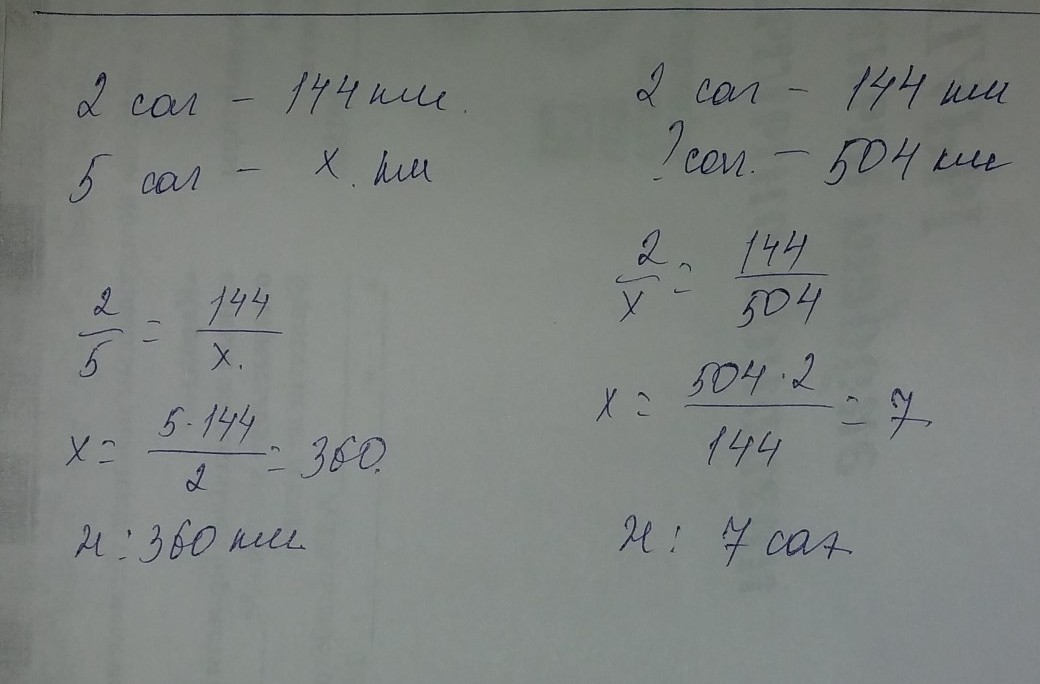 2 сағ - 144 км.
5 сағ - x. км
2/5 = 144/x.
x = 5·144/2 = 360.
Ж: 360 км
2 сағ - 144 км
? сағ. - 504 км
2/x = 144/504
x = 504·2/144 = 7
Ж: 7 сағ